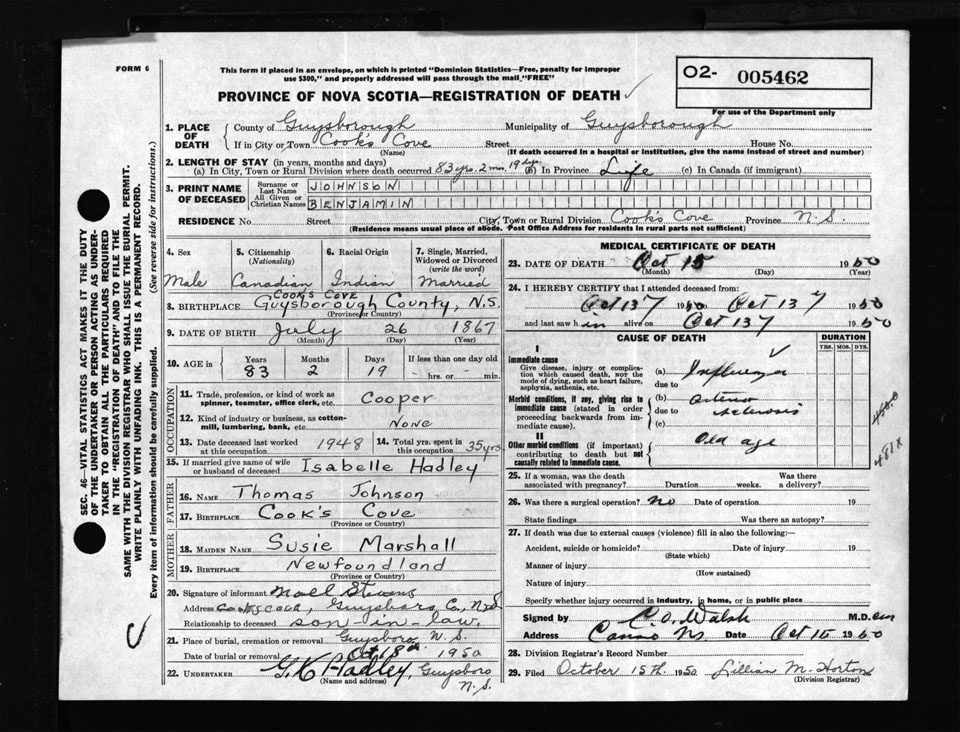 FORM 6
This form if placed in an envelope, on which is printed "Dominion Statistics—Free, penalty for improper
use $300," and properly addressed will pass through the mail "FREE"
O2- 005462
For use of the Department only
PROVINCE OF NOVA SCOTIA—REGISTRATION OF DEATH
1. PLACE OF DEATH
County of Guysborough Municipality of Guysborough
If in City or Town Cook's Cove Street House No.
(Name) (If death occurred in a hospital or institution, give the name instead of street and number)
2. LENGTH OF STAY (in years, months and days)
(a) In City, Town or Rural Division where death occurred 83 yrs. 2 mos. 19 dys. (b) In Province Life (c) In Canada (if immigrant)
3. PRINT NAME OF DECEASED
Surname or Last Name JOHNSON
All Given or Christian Names BENJAMIN
RESIDENCE No. Street City, Town or Rural Division Cook's Cove Province N.S.
(Residence means usual place of abode. Post Office Address for residents in rural parts not sufficient)
4. Sex 5. Citizenship (Nationality) 6. Racial Origin 7. Single, Married, Widowed or Divorced (write the word)
Male Canadian Indian Married
8. BIRTHPLACE Cook's Cove Guysborough County, N.S.
(Province or Country)
9. DATE OF BIRTH July 26 1867
(Month) (Day) (Year)
10. AGE in Years Months Days If less than one day old
83 2 19 - hrs. or - min.
OCCUPATION
11. Trade, profession, or kind of work as spinner, teamster, office clerk, etc. Cooper
12. Kind of industry or business, as cotton-mill, lumbering, bank, etc. None
13. Date deceased last worked at this occupation 1948 14. Total yrs. spent in this occupation 35 yrs
15. If married give name of wife or husband of deceased Isabelle Hadley
FATHER
16. NAME Thomas Johnson
17. BIRTHPLACE Cook's Cove
(Province or Country)
MOTHER
18. MAIDEN NAME Susie Marshall
19. BIRTHPLACE Newfoundland
(Province or Country)
20. Signature of informant Noel Stevens
Address Cooks Cove, Guysboro Co, N.S
Relationship to deceased son-in-law.
21. Place of burial, cremation or removal Guysboro N.S.
Date of burial or removal Oct 18th 1950
22. UNDERTAKER G.K Hadley, Guysboro N.S.
(Name and address)
MEDICAL CERTIFICATE OF DEATH
23. DATE OF DEATH Oct 15 1950
(Month) (Day) (Year)
24. I HEREBY CERTIFY that I attended deceased from:
Oct 13 1950 Oct 13 1950
and last saw h im alive on Oct 13 1950
CAUSE OF DEATH DURATION
YRS. MOS. DYS.
I
Immediate cause
Give disease, injury or complication which caused death, not the mode of dying, such as heart failure, asphyxia, asthenia, etc.
(a) Influenza
due to
Morbid conditions, if any, giving rise to immediate cause (stated in order proceeding backwards from immediate cause).
(b) Arterio
due to sclerosis
(c)
II
Other morbid conditions (if important) contributing to death but not causally related to immediate cause.
Old age
450.0
481X
25. If a woman, was the death associated with pregnancy? Duration weeks. Was there a delivery?
26. Was there a surgical operation? no Date of operation 19
State findings Was there an autopsy?
27. If death was due to external causes (violence) fill in also the following:—
Accident, suicide or homicide? Date of injury 19
(State which)
Manner of injury
(How sustained)
Nature of injury
Specify whether injury occurred in industry, in home, or in public place
Signed by C.O. Walsh M.D. cm
Address Canso Ns. Date Oct 15 1950
28. Division Registrar's Record Number
29. Filed October 15th. 1950 Lillian M. Horton
(Division Registrar)
SEC. 46—VITAL STATISTICS ACT MAKES IT THE DUTY
OF THE UNDERTAKER OR PERSON ACTING AS UNDER-
TAKER TO OBTAIN ALL THE PARTICULARS REQUIRED
IN THE "REGISTRATION OF DEATH" AND TO FILE THE
SAME WITH THE DIVISION REGISTRAR WHO SHALL ISSUE THE BURIAL PERMIT.
WRITE PLAINLY WITH UNFADING INK. THIS IS A PERMANENT RECORD.
Every item of information should be carefully supplied. (See reverse side for instructions.)